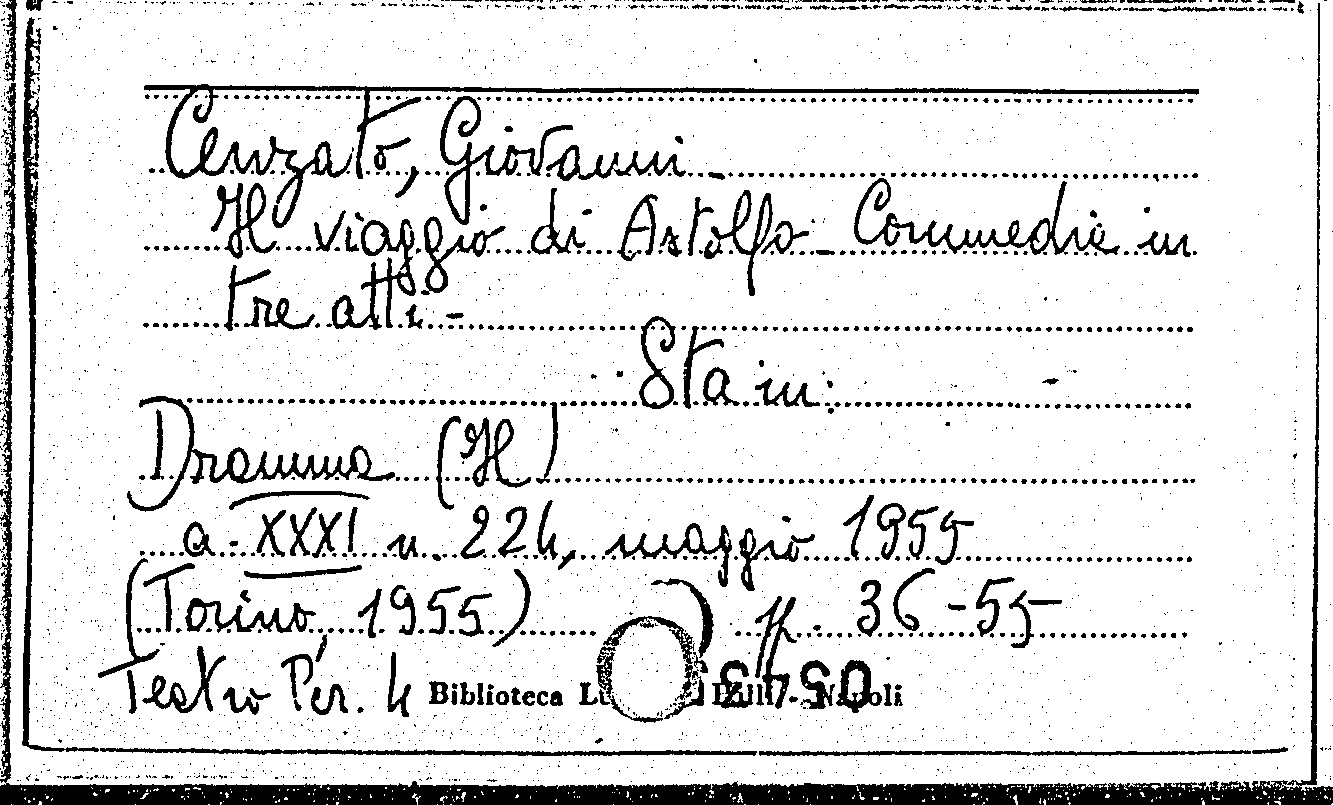 Cenzato, Giovanni -
Il viaggio di Astolfo - Commedia in
tre atti -
Sta in:
Dramma (Il)
a. XXXI n. 224, maggio 1955
(Torino, 1955) pp. 36-55
Teatro Per. 4 Biblioteca Napoli